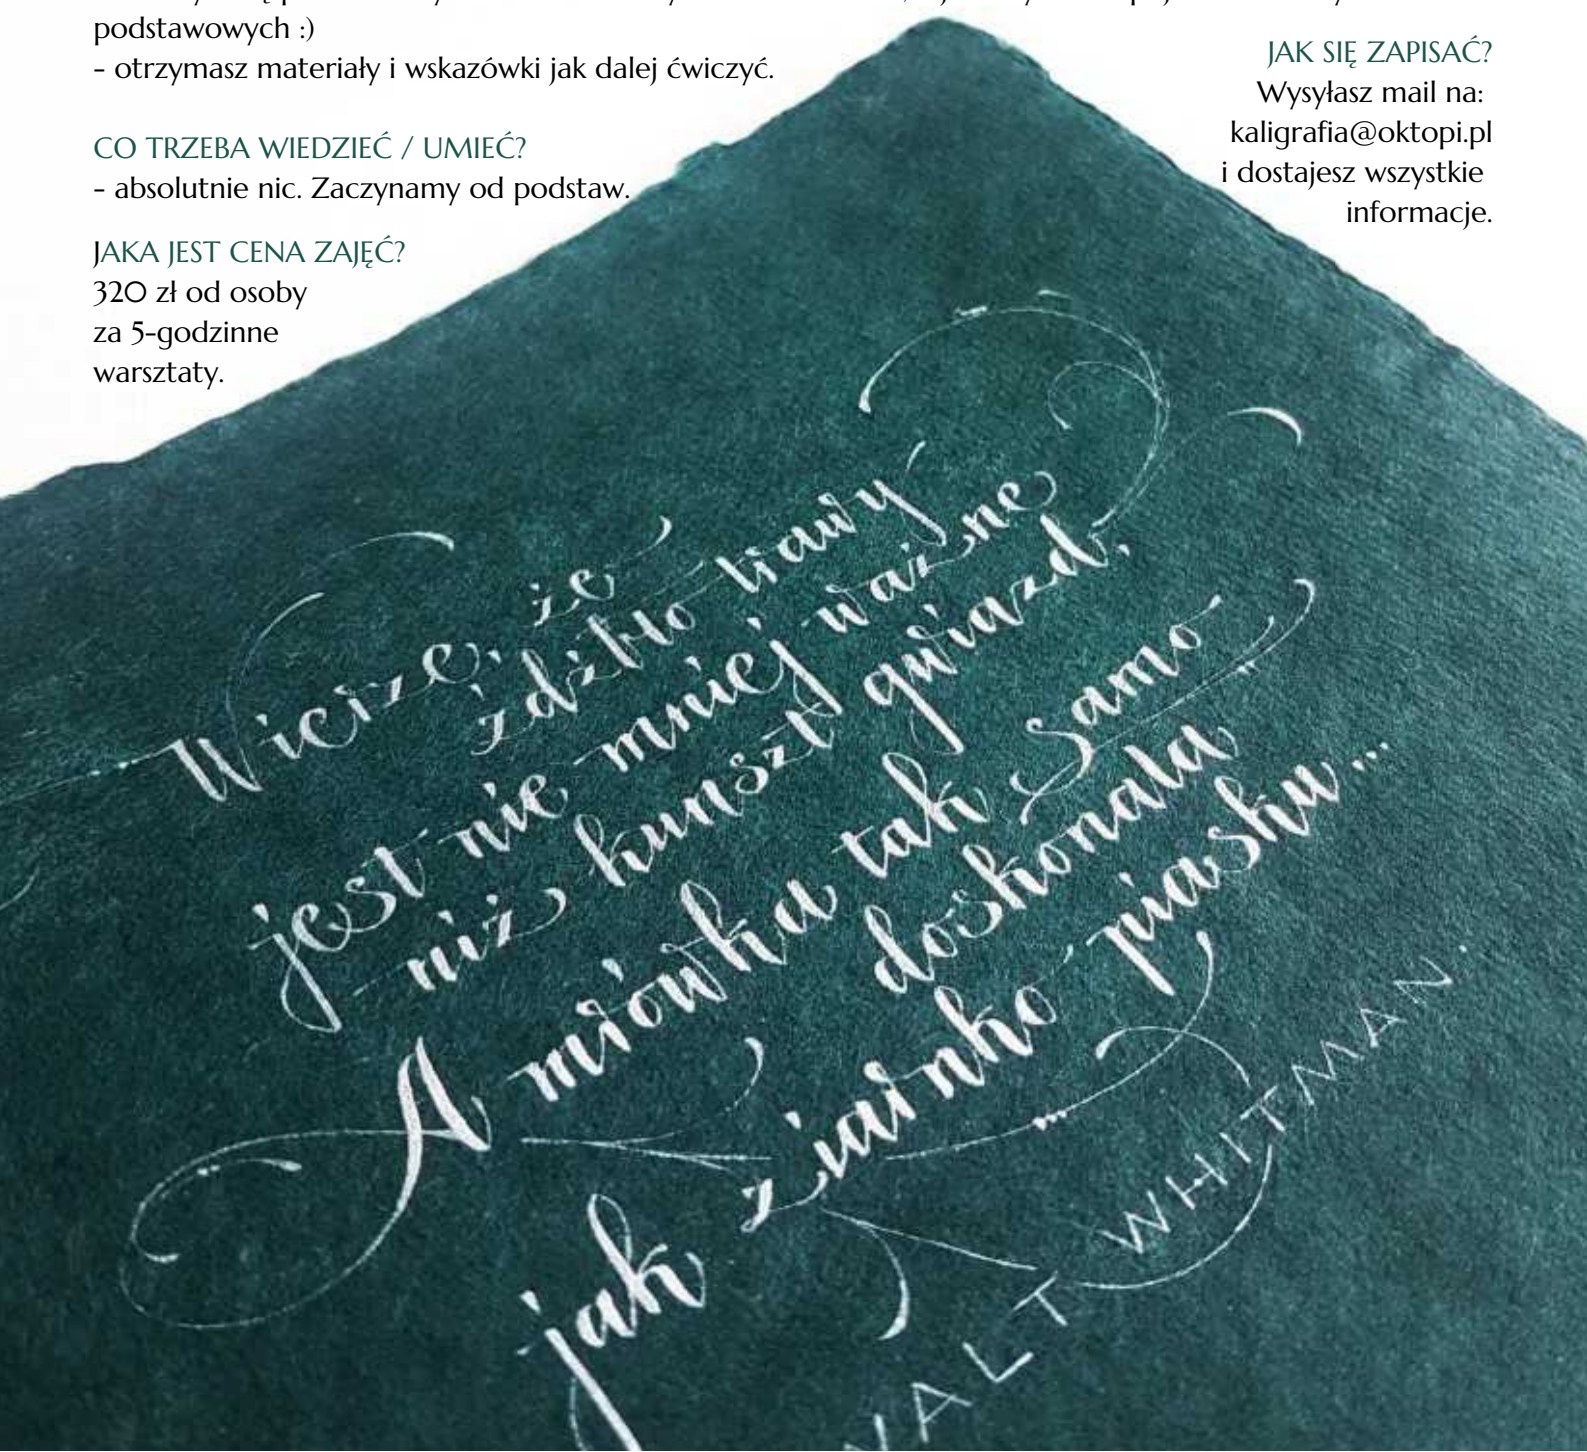 podstawowych :)
- otrzymasz materiały i wskazówki jak dalej ćwiczyć.
CO TRZEBA WIEDZIEĆ / UMIEĆ?
- absolutnie nic. Zaczynamy od podstaw.
JAKA JEST CENA ZAJĘĆ?
320 zł od osoby
za 5-godzinne
warsztaty.
JAK SIĘ ZAPISAĆ?
Wysyłasz mail na:
kaligrafia@oktopi.pl
i dostajesz wszystkie
informacje.
Wierzę, że
źdźbło trawy
jest nie mniej ważne
niż kunszt gwiazd,
A mrówka tak samo
doskonała
jak ziarnko piasku...
WALT WHITMAN.